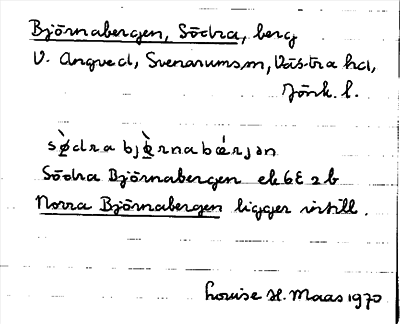 Björnabergen, Södra, berg
V. Angved, Svenarumsm, Västra hd,
Jönk. l.
sø̀dra bjø̀rnabærjən
Södra Björnabergen ek 6E 2b
Norra Björnabergen ligger intill.
Louise H. Maas 1970